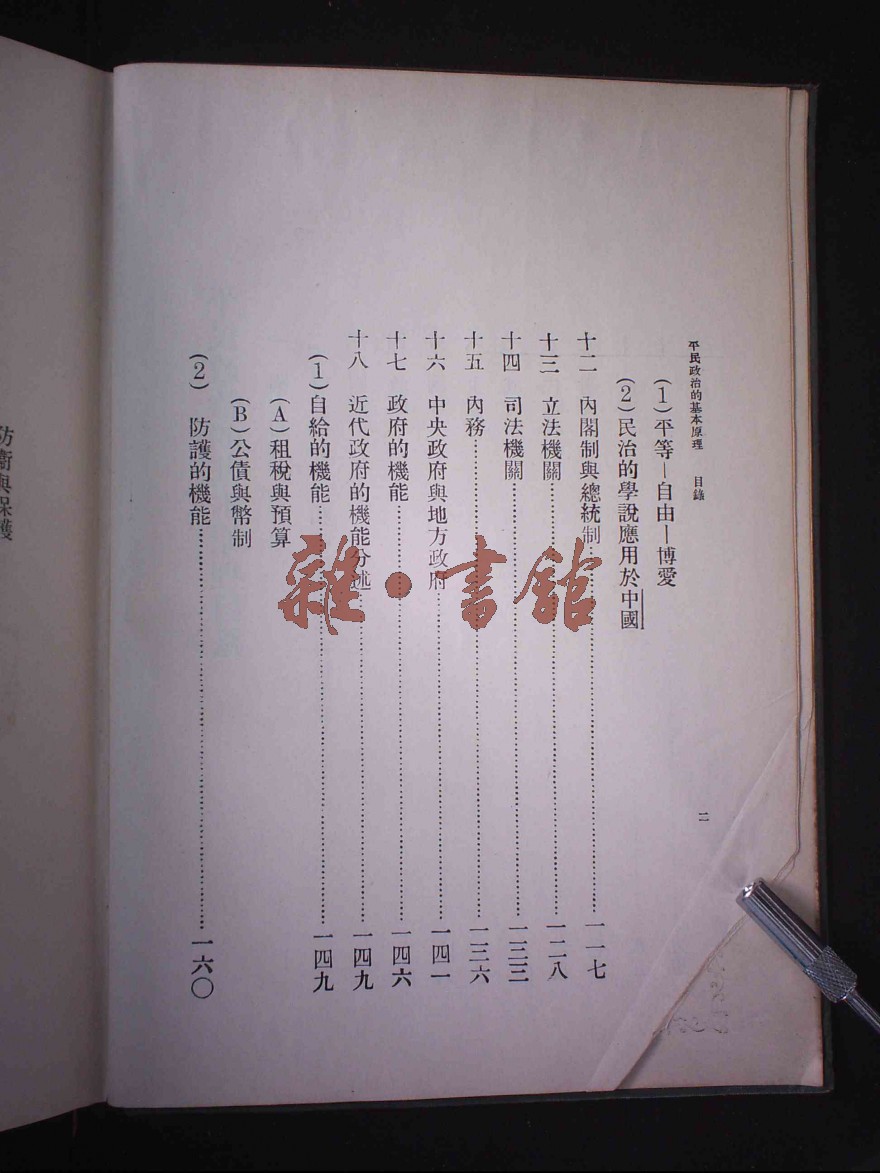 平民政治的基本原理　目錄
二
(1)平等—自由—博愛
(2)民治的學說應用於中國
十二　內閣制與總統制……一一七
十三　立法機關……一二八
十四　司法機關……一三三
十五　內務……一三六
十六　中央政府與地方政府……一四一
十七　政府的機能……一四六
十八　近代政府的機能分述……一四九
(1)自給的機能……一四九
(A)租稅與預算
(B)公債與幣制
(2)　防護的機能……一六〇
防衞與保護
雜·書館